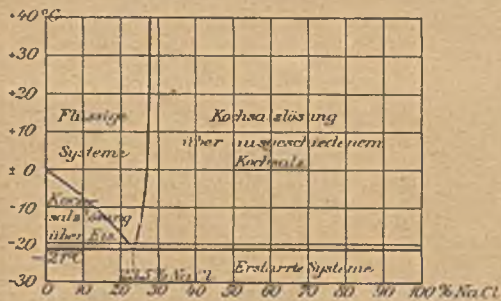 +40 °C
+30
+20
+10
± 0
-10
-20
-30
Flüssige
Systeme
Kochsalzlösung
über ausgeschiedenem
Kochsalz
Koch-
salzlösung
über Eis
-21°C
23,5 % NaCl
Erstarrte Systeme
0 10 20 30 40 50 60 70 80 90 100 % NaCl